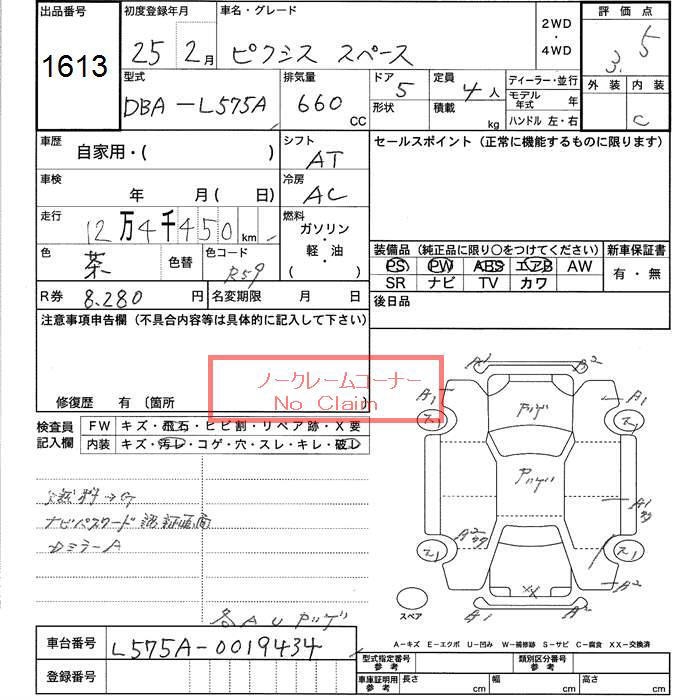 出品番号 初度登録年月 車名・グレード 2WD ・ 4WD 評価点
1613 25 2月 ピクシス スペース 3.5
型式 排気量 ドア 5 定員 4人 ディーラー・並行 外装 内装
DBA-L575A 660 CC 形状 積載 kg モデル年式 年 C
ハンドル 左・右
車歴 自家用・( ) シフト AT セールスポイント(正常に機能するものに限ります)
車検 年 月( 日) 冷房 AC
走行 12万4千450 km 燃料 ガソリン・軽・油 ( )
色 茶 色替 色コード R59
装備品(純正品に限り○をつけてください) 新車保証書
PS PW ABS エアB AW 有・無
SR ナビ TV カワ
R券 8,280円 名変期限 月 日 後日品
注意事項申告欄(不具合内容等は具体的に記入して下さい)
ノークレームコーナー
No Claim
修復歴 有 〔箇所
検査員記入欄 FW キズ・飛石・ヒビ割・リペア跡・X要
内装 キズ・汚レ・コゲ・穴・スレ・キレ・破レ
ナビパスワード認証画面
DミラーA
各AUアリ
A1 A2
A1 A1
ス1 ス1
A2 A1
ス1 ス1
XX A2
A1 A2
スペア
A-キズ E-エクボ U-凹み W-補修跡 S-サビ C-腐食 XX-交換済
車台番号 L575A-0019434
登録番号
型式指定番号 参考 類別区分番号 参考
車庫証明用 参考 長さ cm 幅 cm 高さ cm